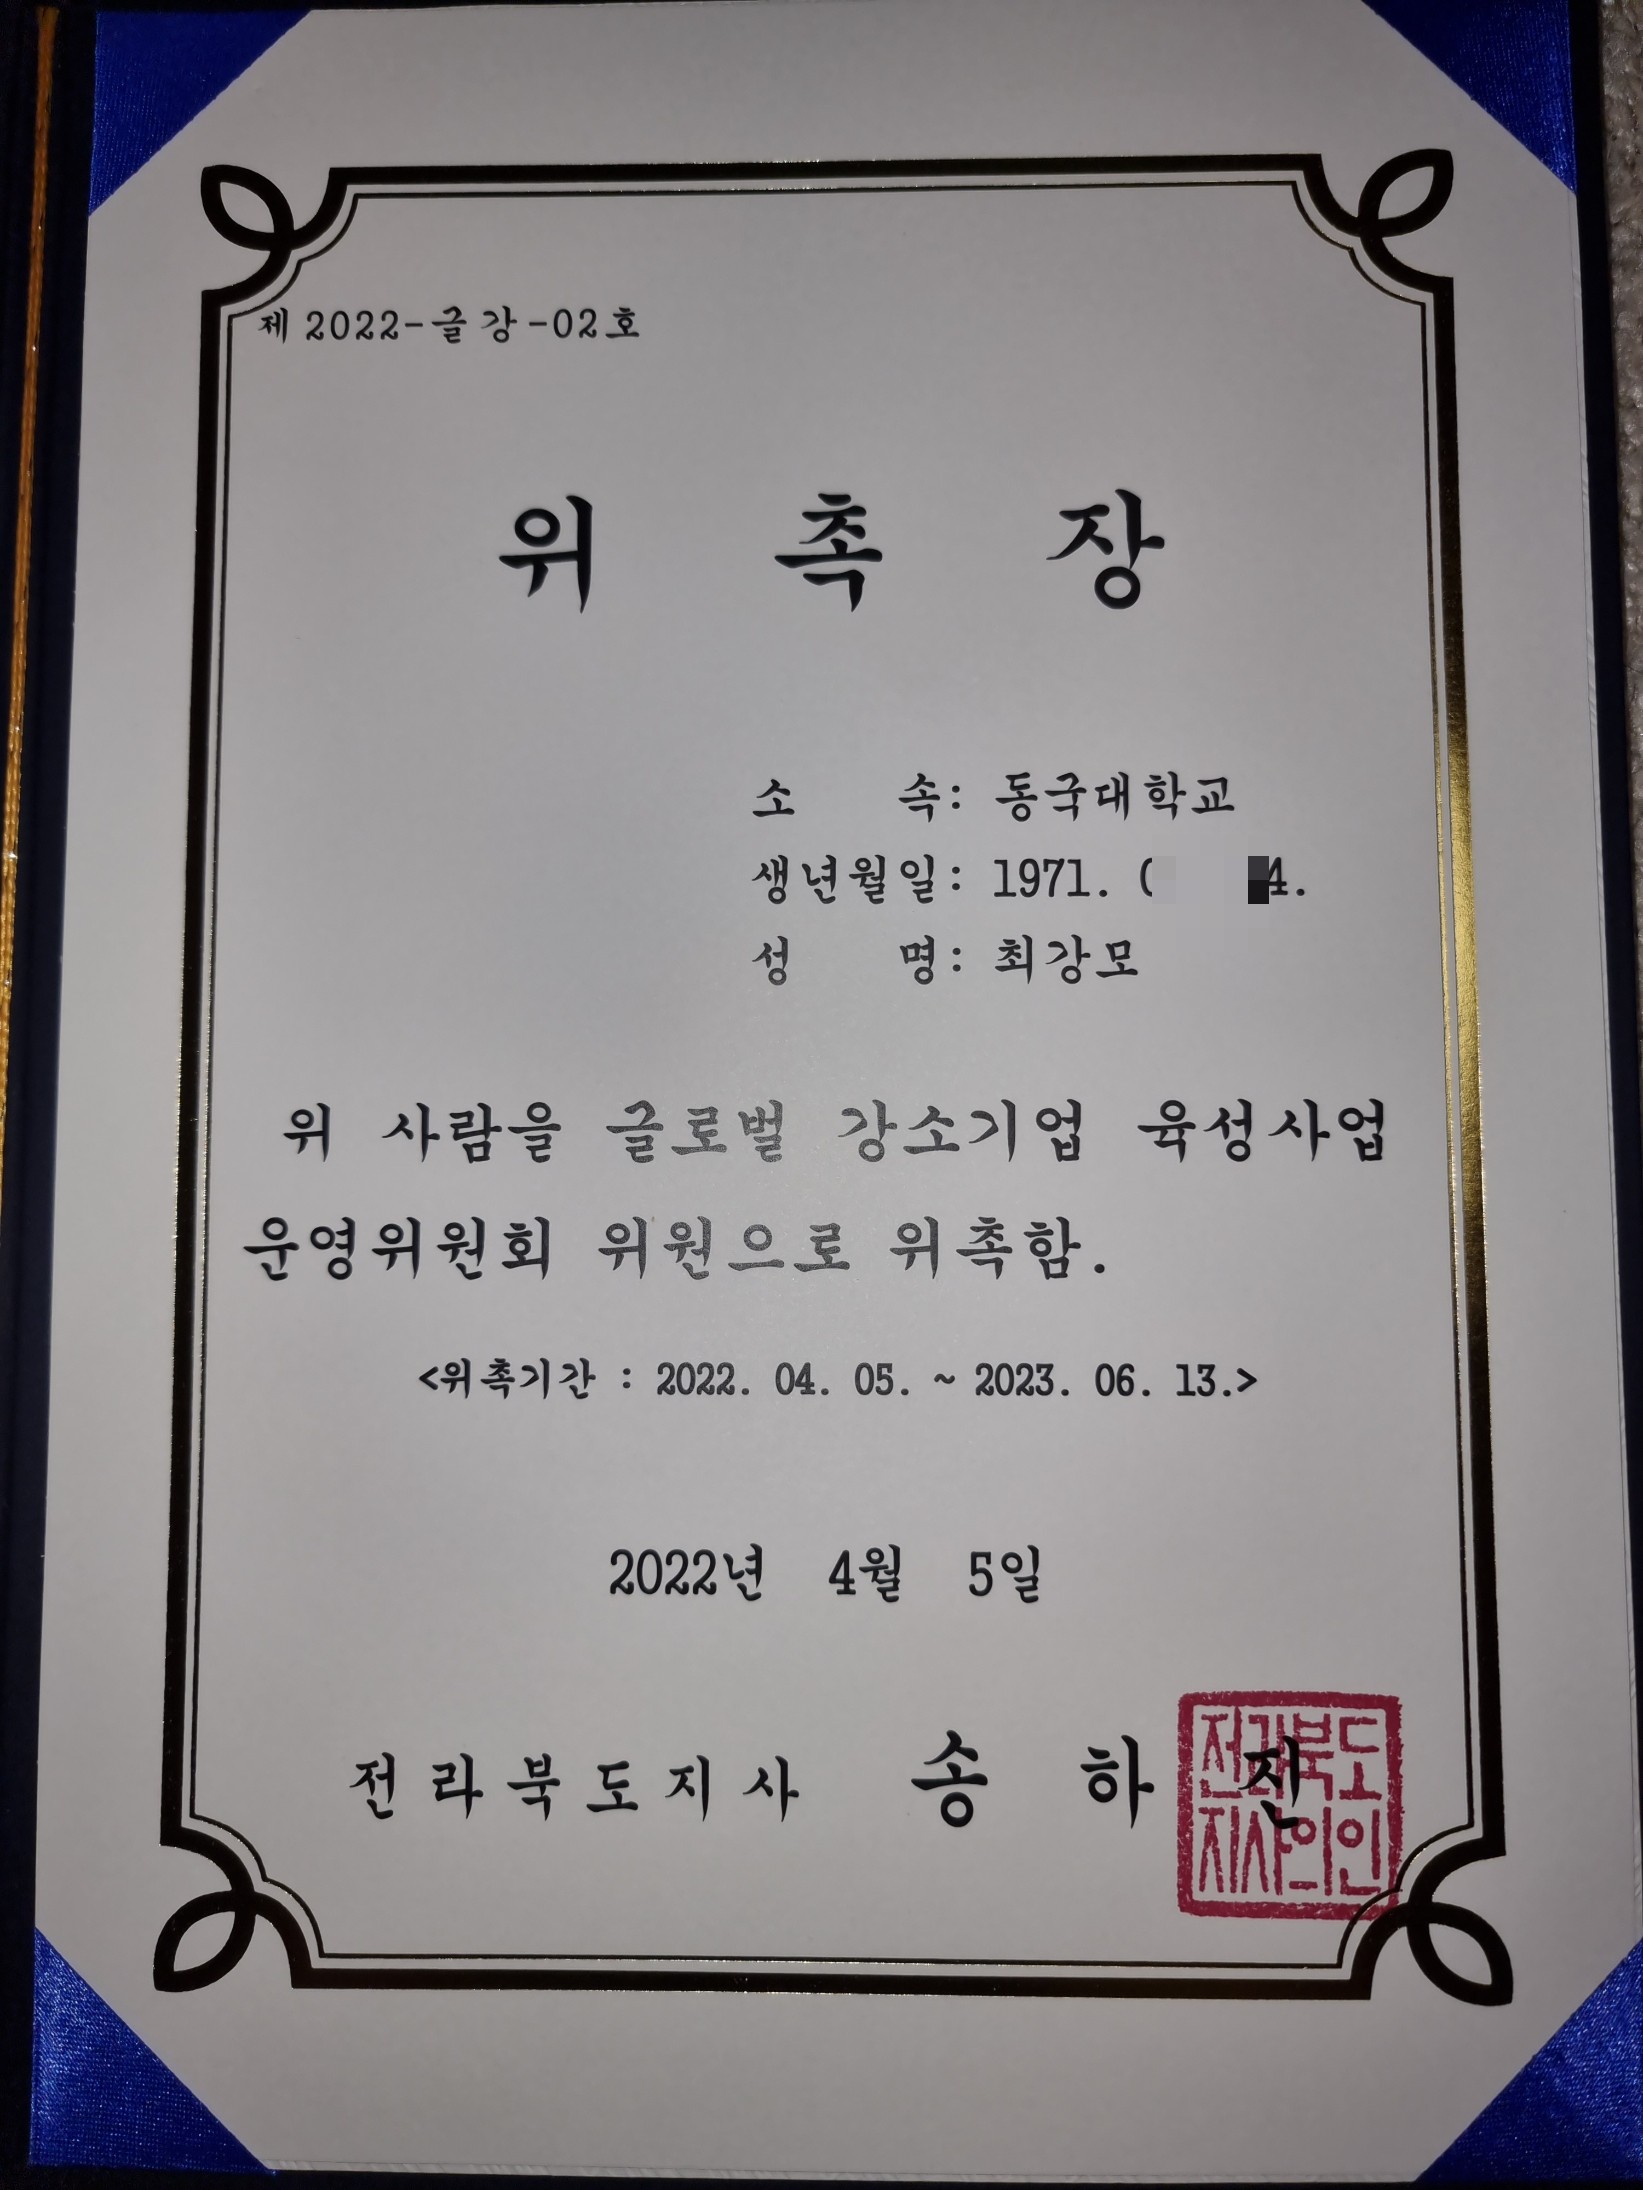 제 2022-글강-02호
위 촉 장
소 속: 동국대학교
생년월일: 1971. 4.
성 명: 최강모
위 사람을 글로벌 강소기업 육성사업
운영위원회 위원으로 위촉함.
<위촉기간 : 2022. 04. 05. ~ 2023. 06. 13.>
2022년 4월 5일
전라북도지사 송 하 진
전라북도
지사의인